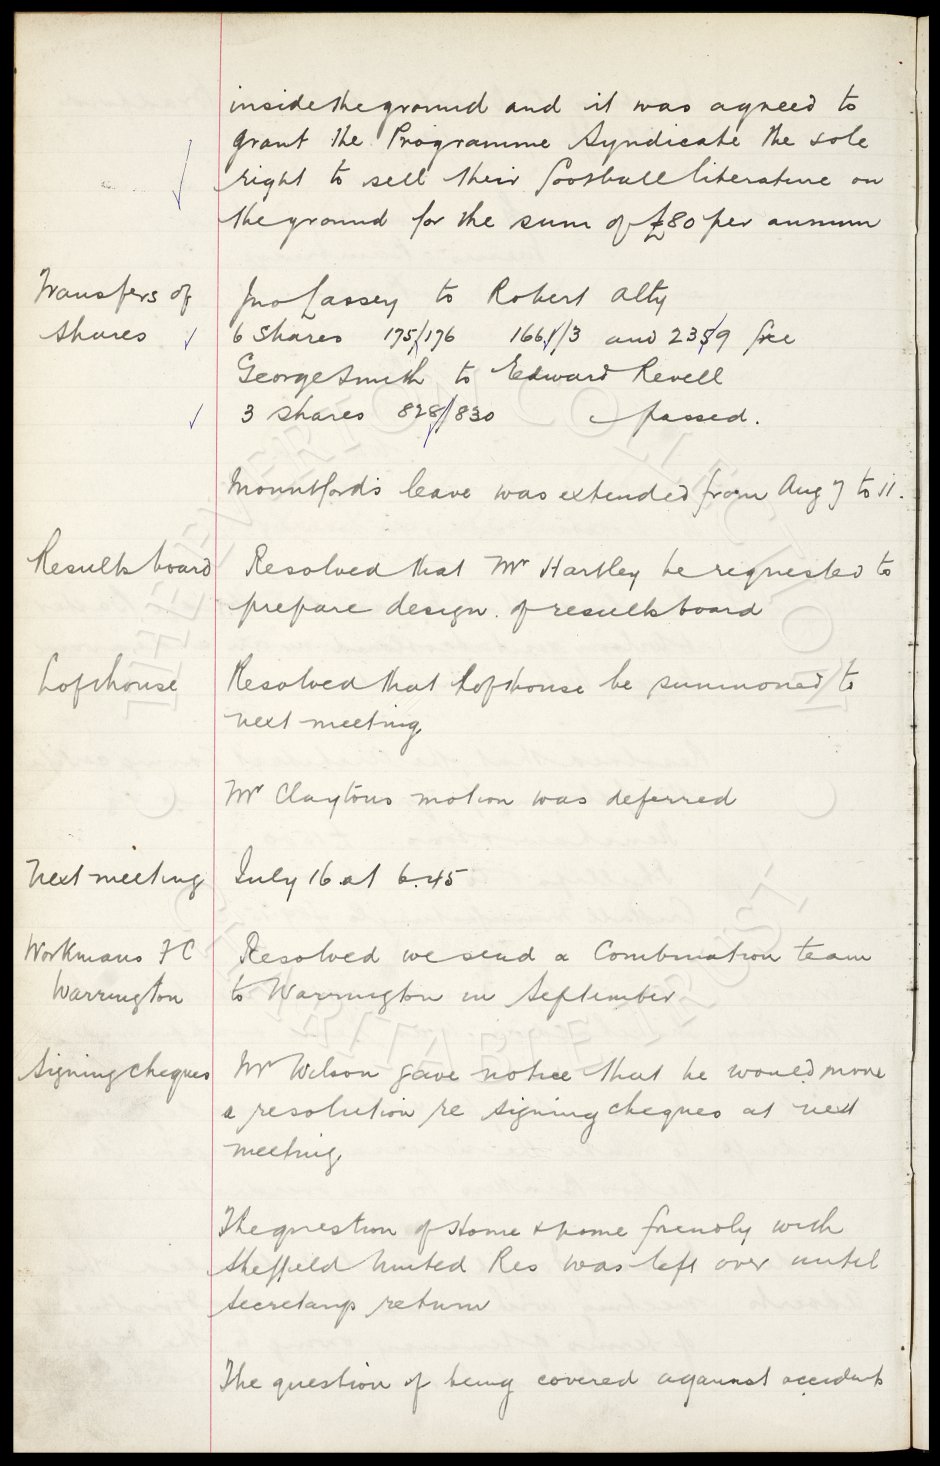 inside the ground and it was agreed to
grant the Programme Syndicate the sole
right to sell their football literature on
the ground for the sum of £80 per annum
Transfers of
Shares
Jno Lassey to Robert Alty
6 Shares 175/176 1661/3 and 2359
George Smith to Edward Revell
3 shares 828/830 passed.
Mountford's leave was extended from Aug 7 to 11.
Results board
Resolved that Mr Hartley be requested to
prepare design of results board
Lofthouse
Resolved that Lofthouse be summoned to
next meeting
Mr Claytons motion was deferred
Next meeting
July 16 at 6.45
Workmans F C
Warrington
Resolved we send a Combination team
to Warrington in September
Signing cheques
Mr Wilson gave notice that he would move
a resolution re signing cheques at next
meeting
The question of Home & home friendly with
Sheffield United Res was left over until
Secretarys return
The question of being covered against accidents
THE EVERTON COLLECTION
CHARITABLE TRUST